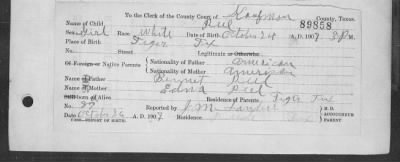 To the Clerk of the County Court of Kaufman County, Texas.
Name of Child Peel 89858
Sex Girl Race White Date of Birth October 24 A.D. 1907 3 P.M.
Place of Birth Tiger Tex
No. Street. Legitimate or Otherwise.
Or Foreign or Native Parents Nationality of Father American
Nationality of Mother American
Name Father Peel
Name Mother Edna Peel
born or Alive Residence of Parents Tiger Tex
No. 37 Reported by J. M.
Date October 26 A.D. 1907 Residence
REPORT OF BIRTH. M. D. ACCOUCHEUR PARENT